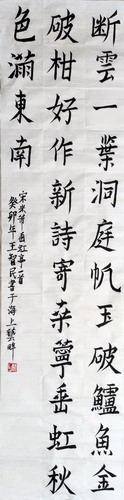 斷雲一葉洞庭帆玉破鱸魚金
破柑好作新詩寄桑薴垂虹秋
色滿東南
宋米芾垂虹亭一首
癸卯年王智民書于海上藝畔